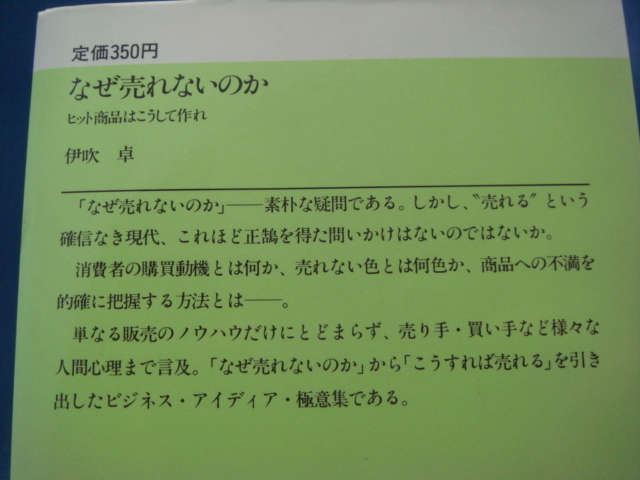 定価350円
なぜ売れないのか
ヒット商品はこうして作れ
伊吹 卓
「なぜ売れないのか」――素朴な疑問である。しかし、〝売れる〟という
確信なき現代、これほど正鵠を得た問いかけはないのではないか。
消費者の購買動機とは何か、売れない色とは何色か、商品への不満を
的確に把握する方法とは――。
単なる販売のノウハウだけにとどまらず、売り手・買い手など様々な
人間心理まで言及。「なぜ売れないのか」から「こうすれば売れる」を引き
出したビジネス・アイディア・極意集である。